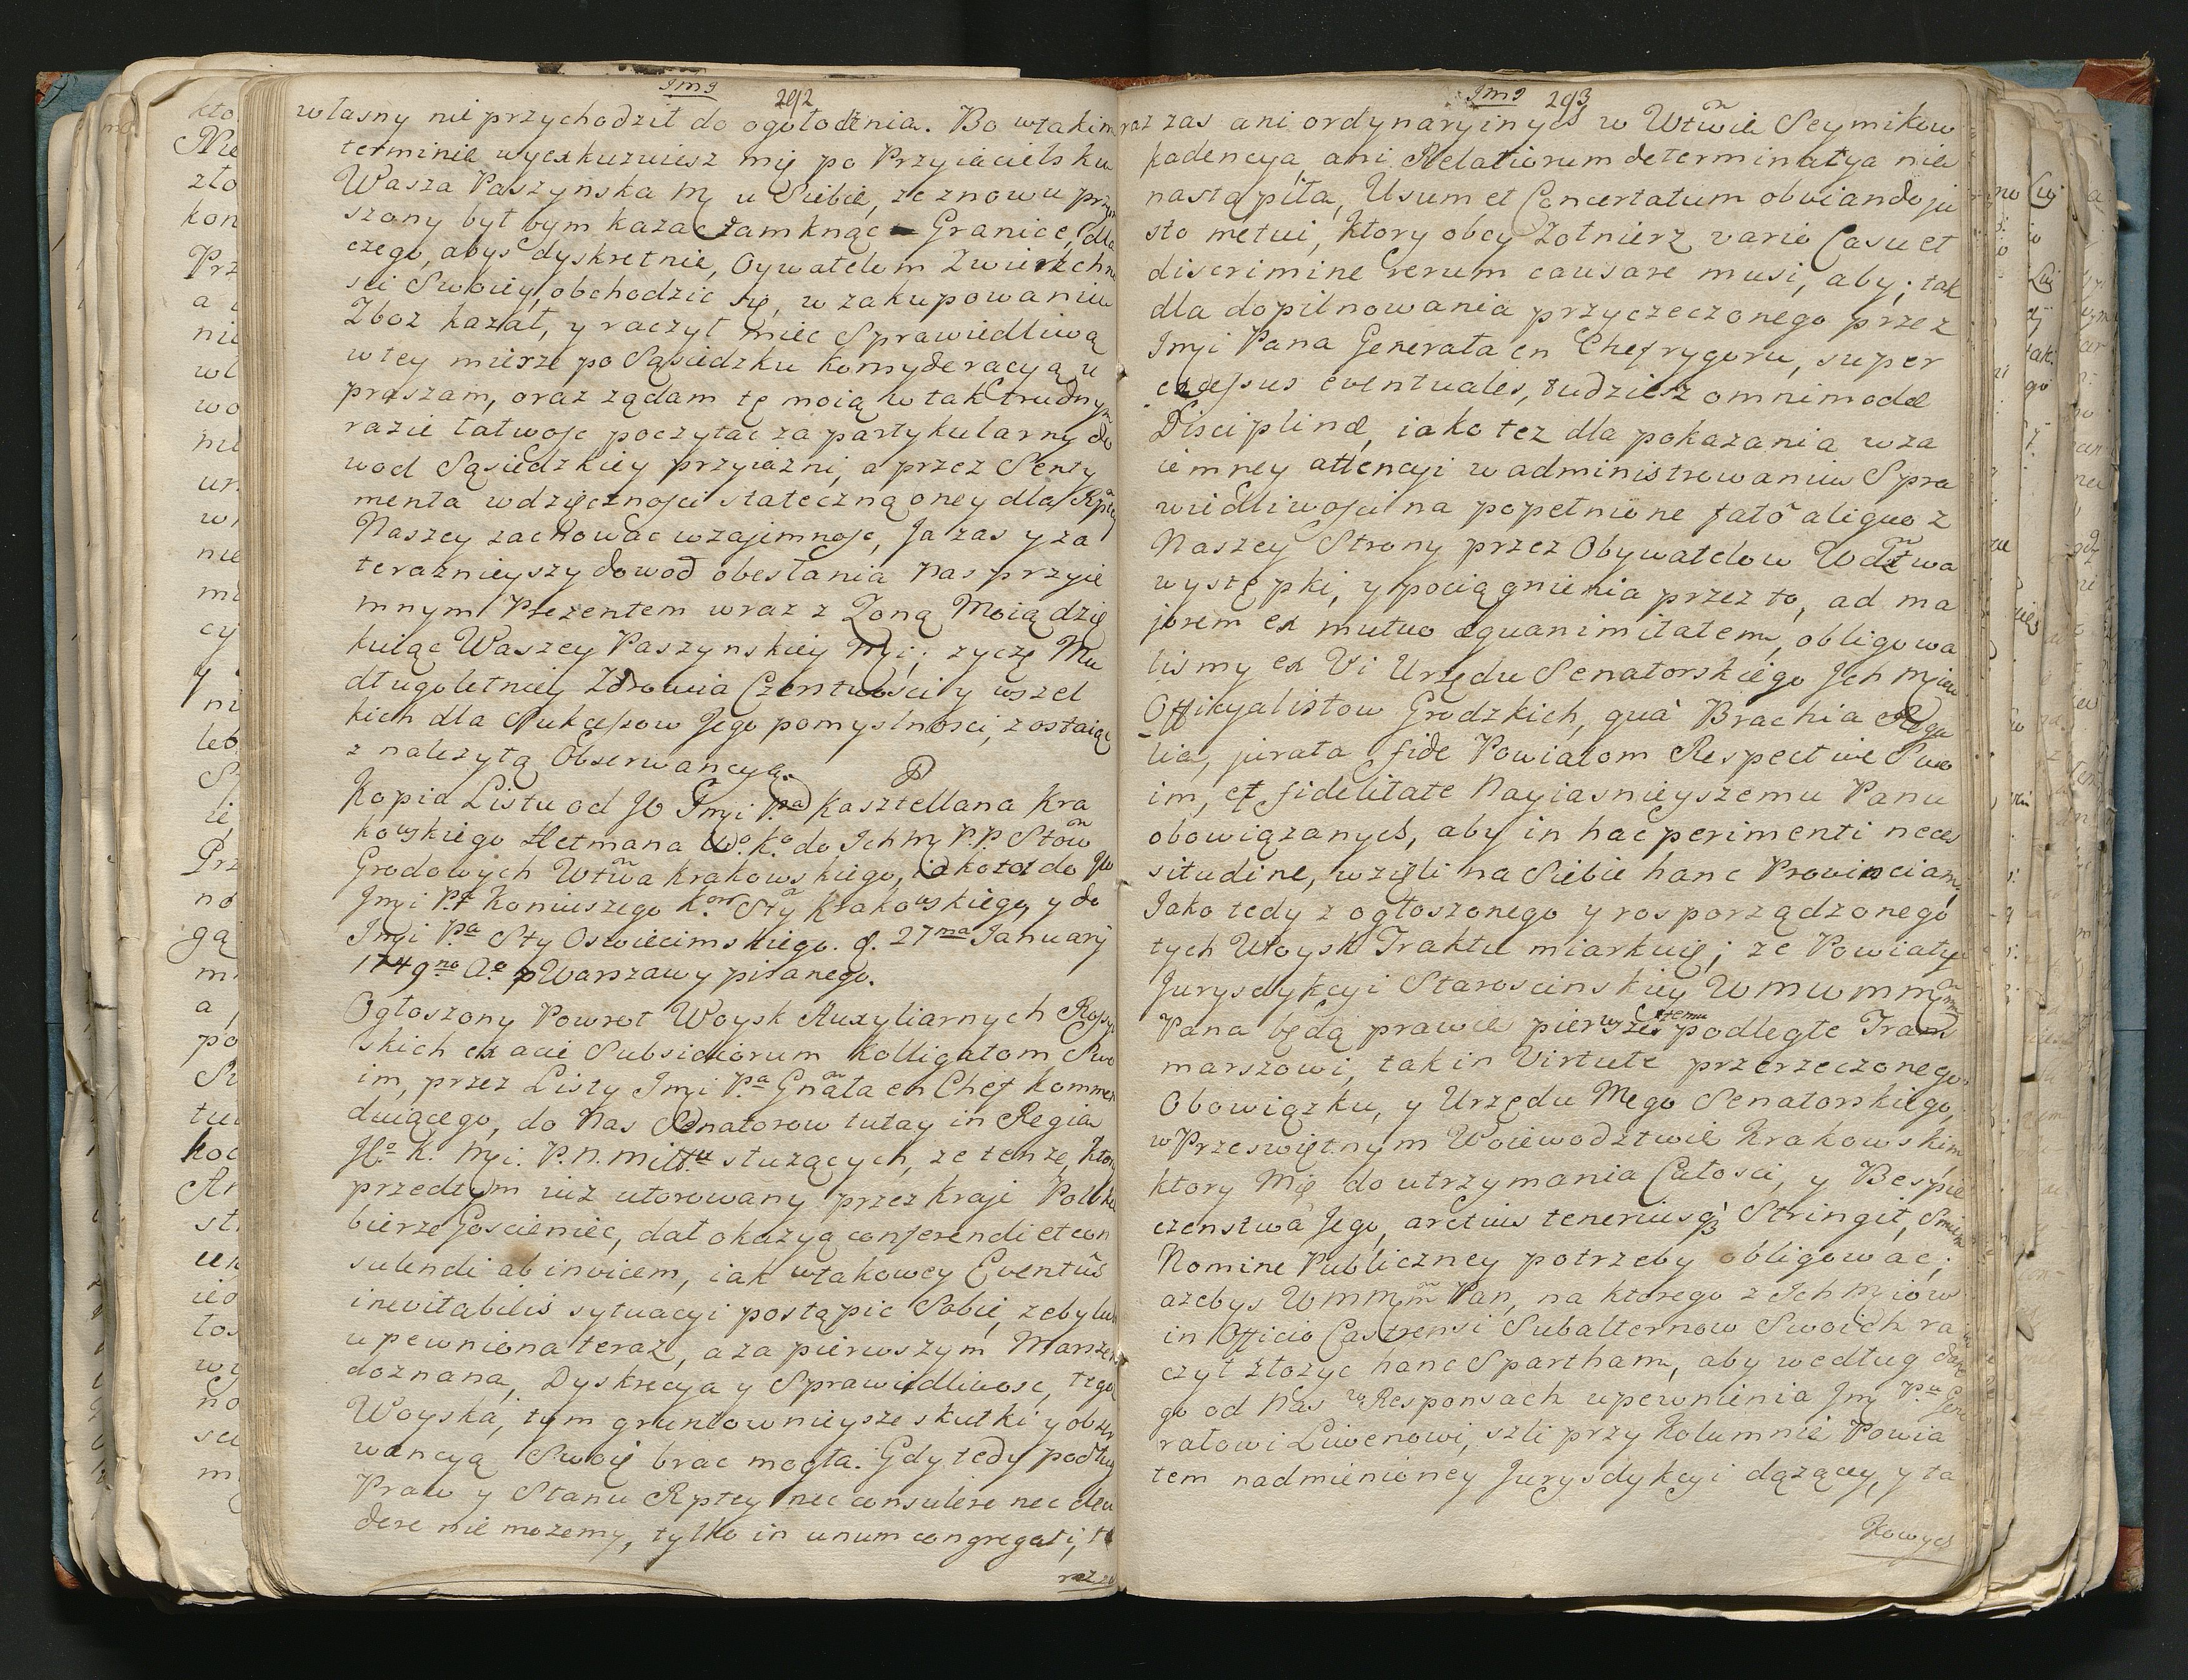 292
własny nie przychodził do ogołodznia. Bo w takim
terminie wyexkuzuiesz mię po Przyiacielsku
Wasza Paszynska Mć u Siebie, ze znowu przy
szony był bym kazac zamknąc Granice, dla
czego, abys dyskretnie, Oywatelom Zwierzchno
sci Swoiey, obchodzic się, w zakupowaniu
Zboz kazał, y raczył miec Sprawiedliwą
w tey mierze po Sąsiedzku konsyderacyą u
praszam, oraz ządam tę moią w tak trudnym
razie łatwosc poczytac za partykularny do
wod Sąsiedzkiey przyiazni, a przez Senty
menta wdzięcznosci stateczną oney dla Rptey
Naszey zachowac wzajemnosc, Ja zas y za
teraznieyszy dowod obesłania nas przyie
mnym Prezentem wraz z Zoną Moią dzię
kuiąc Waszey Paszynskiey Mći, zyczę Mu
długoletniey Zdrowia Czerstwosci y wszel
kich dla Sukcessow Jego pomyslnosci, zostaiąc
z nalezytą Obserwancyą.
Kopia Listu od JO Jmći Pa Kasztellana Kra
kowskiego Hetmana Wo Ko do Ich Mć P.P. Stów
Grodowych Wtwa krakowskiego, iako to do JW
Jmći Pa Koniuszego Kor Sty Krakowskiego, y do
Jmći Pa Sty Oswiecimskiego. d. 27ma January
1749no Ao z Warszawy pisanego.
Ogłoszony Powrot Woysk Auxyliarnych Rossy
skich ex acie Subsidiorum kolligatom Swo
im, przez Listy Jmći Pa Gnała en Chef kommen
duiącego, do Nas Senatorow tutay in Regia
Jo K. Mći. P.N. Miłłu słuzących, ze tenze, ktory
przedtym iuz utorowany przez kraji Polskie
bierze Goscieniec, dał okazyą conferendi et con
sulendi ab invicem, iak w takowey Eventus
inevitabilis sytuacyi postąpic Sobie, zeby lub
upewniona teraz, a za pierwszym Marszem
doznana, Dyskrecya y Sprawiedliwosc, tego
Woyska, tym gruntownieysze skutki y obser
wancyą Swoię brac mogła. Gdy tedy podług
Praw y Stanu Rptey nec consulere nec deci
dere nie mozemy, tylko in unum congregati, te
raz za
293
raz zas ani ordynaryinych w Wtwie Seymikow
kadencya, ani Relatiorum determinatya nie
nastąpiła, Usum et Concertatum obviando ju
sto metui, ktory obcy Zołnierz vario Casu et
discrimine rerum causare musi, aby, tak
dla dopilnowania przyczeczonego przez
Jmći Pana Generała en Chef rygoru, super
excessus eventuales, tudziesz omnimodæ
Disciplinæ, iako tez dla pokazania wza
iemney attencyi w administrowaniu Spra
wiedliwosci na popełnione fato aliquo z
Naszey Strony przez Obywatelow Wdztwa
występki, y pociągnienia przez to, ad ma
jorem ex mutuo æquanimitatem, obligowa
lismy ex Vi Urzędu Senatorskiego Ich Mćiow
Offikyalistow Grodzkich, quà Brachia Rega
lia, jurata fide Powiatom Respective Swo
im, et fidelitate Nayiasnieyszemu Panu
obowiązanych, aby in hac perimenti neces
situdine, wzięli na Siebie hanc Provinciam.
Jako tedy z ogłoszonego y rosporządzonego
tych Woysk Traktu miarkuię; ze Powiaty
Jurysdykcyi Starościnskiey WMWMM
Pana będą prawie pierwsze temu podległe Tran
marszowi, tak in Virtute przerzeczonego
Obowiązku, y Urzędu Mego Senatorskiego,
w Przeswiętnym Woiewodztwie Krakowskim,
ktory Mię do utrzymania Całosci, y Bespie
czenstwa Jego, arctius teneriusq; Stringit, Smiem
Nomine Publiczney potrzeby obligowac;
azebys WMMm Pan, na ktorego z Ich Mćiow
in Officio Castrensi Subalternow Swoich ra
czył złozyc hanc Spartham, aby według dane
go od Nas w Responsach upewnienia Jmć Pu Gene
rałowi Liwenowi, szli przy Kolumnie Powia
tem nadmienioney Jurysdykcyi dązący, y ta
kowych